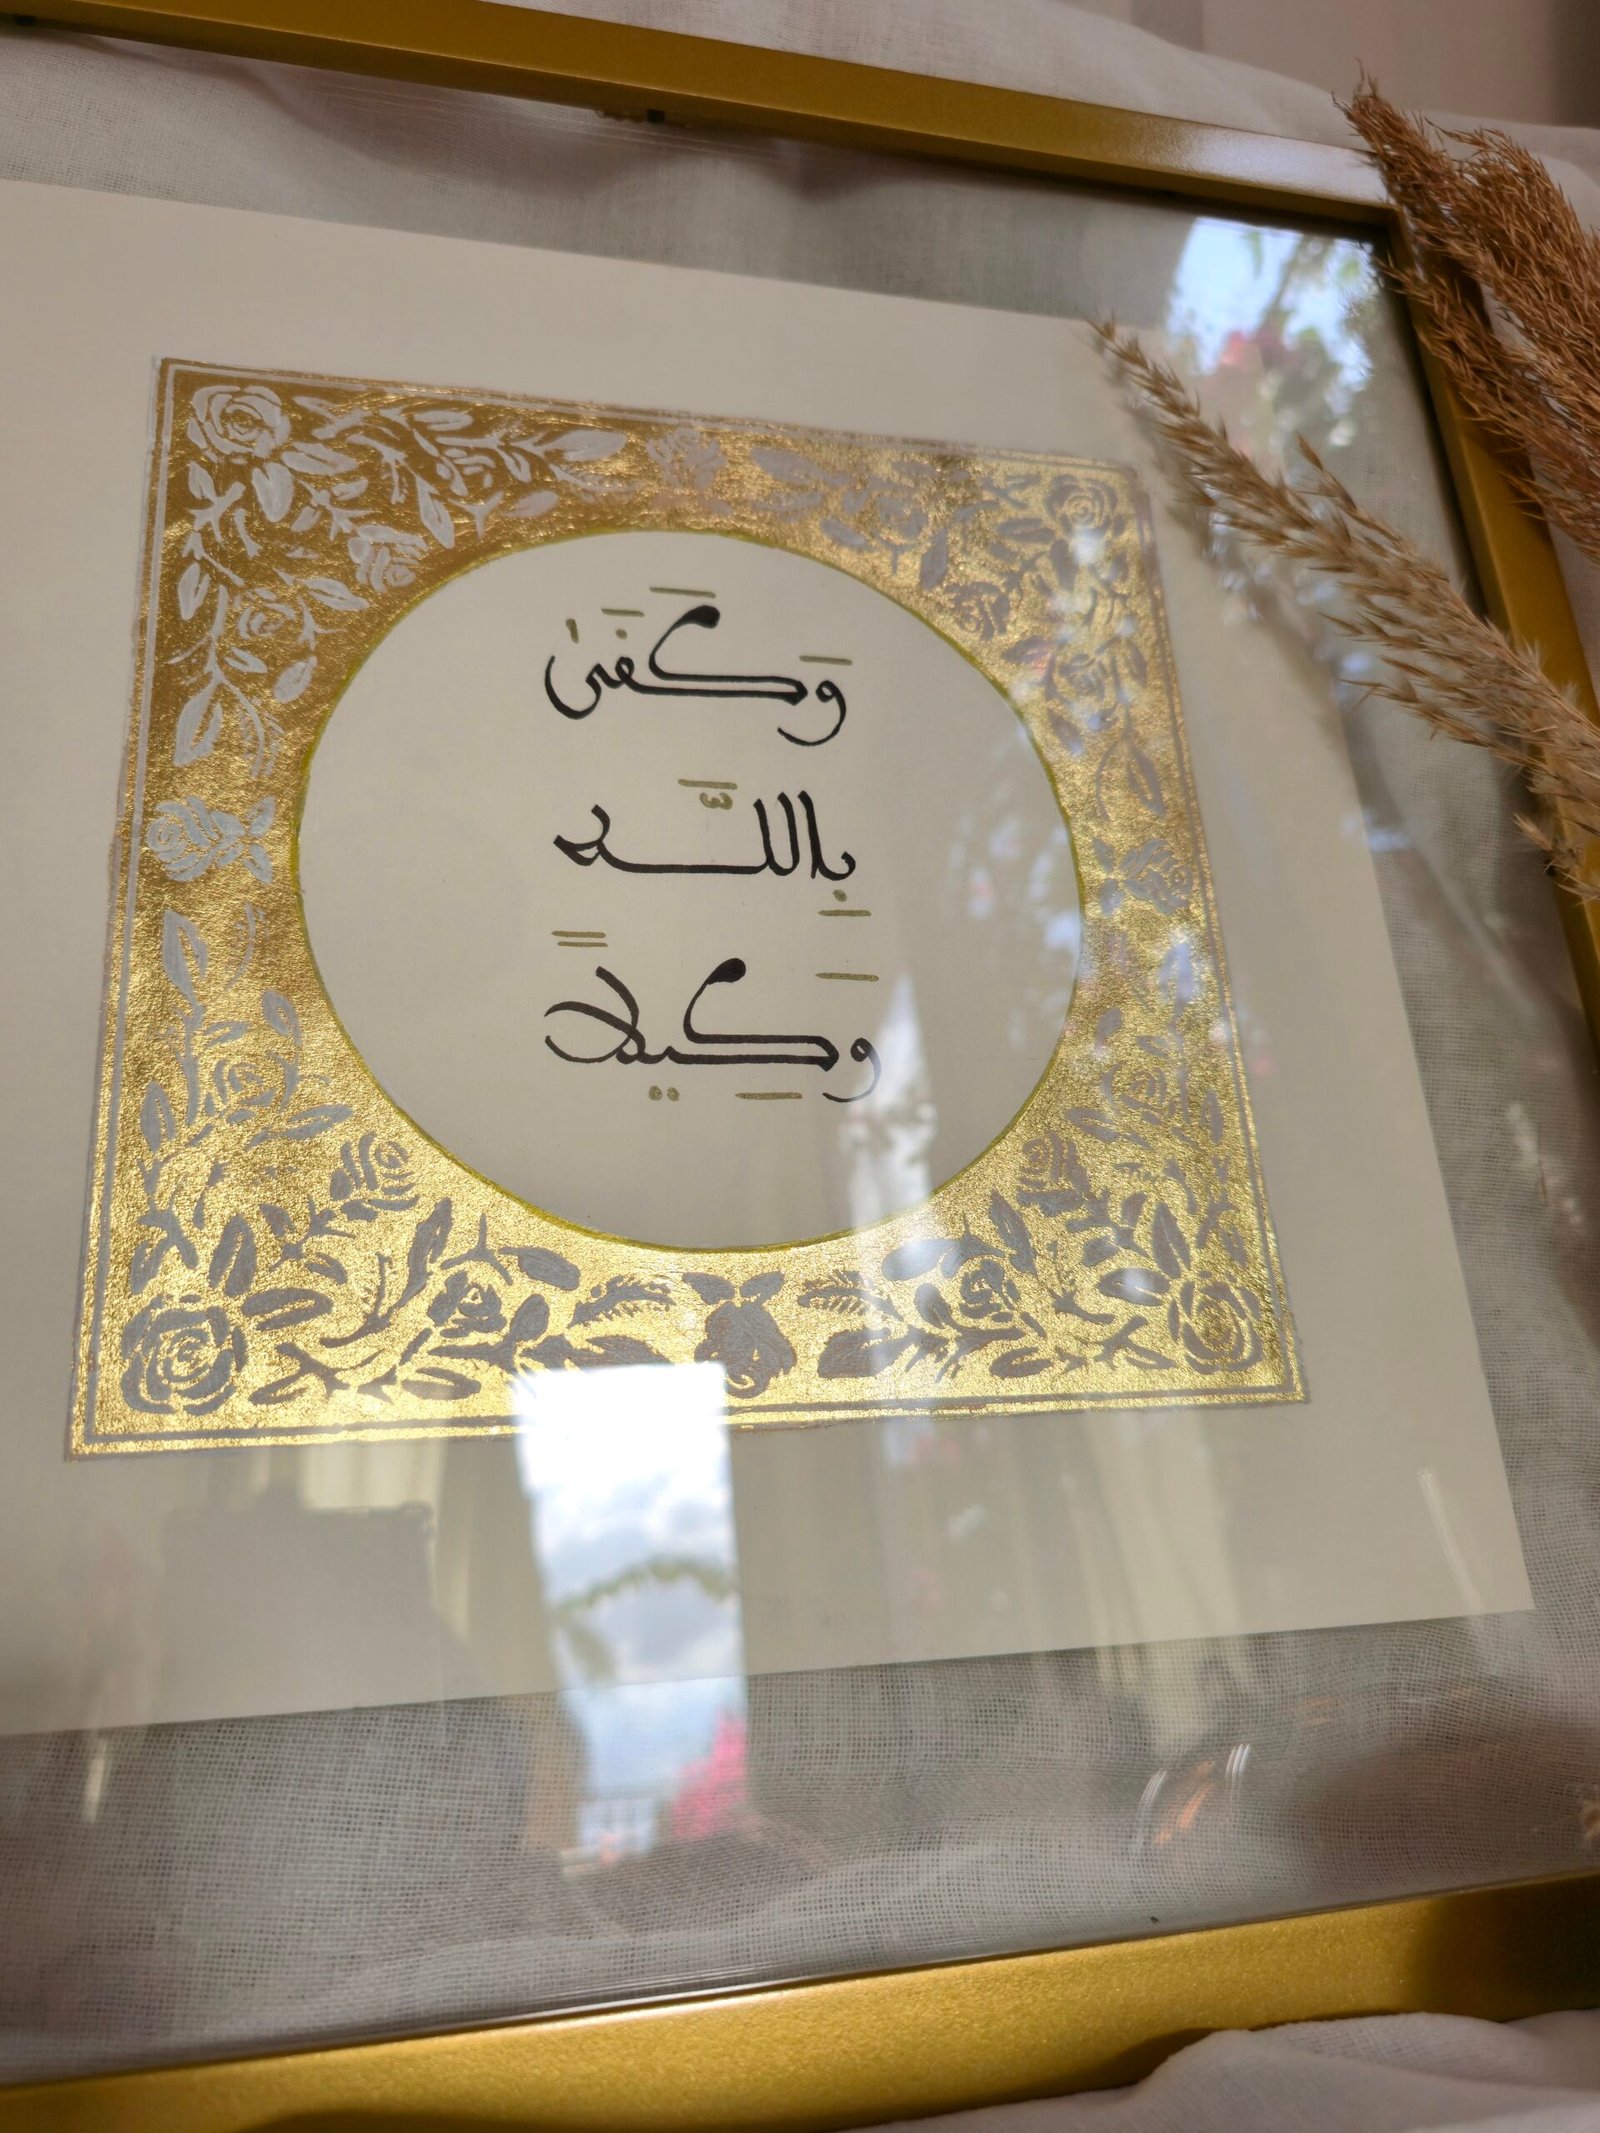 وَكَفَىٰ
بِاللَّه
وَكِيلاً